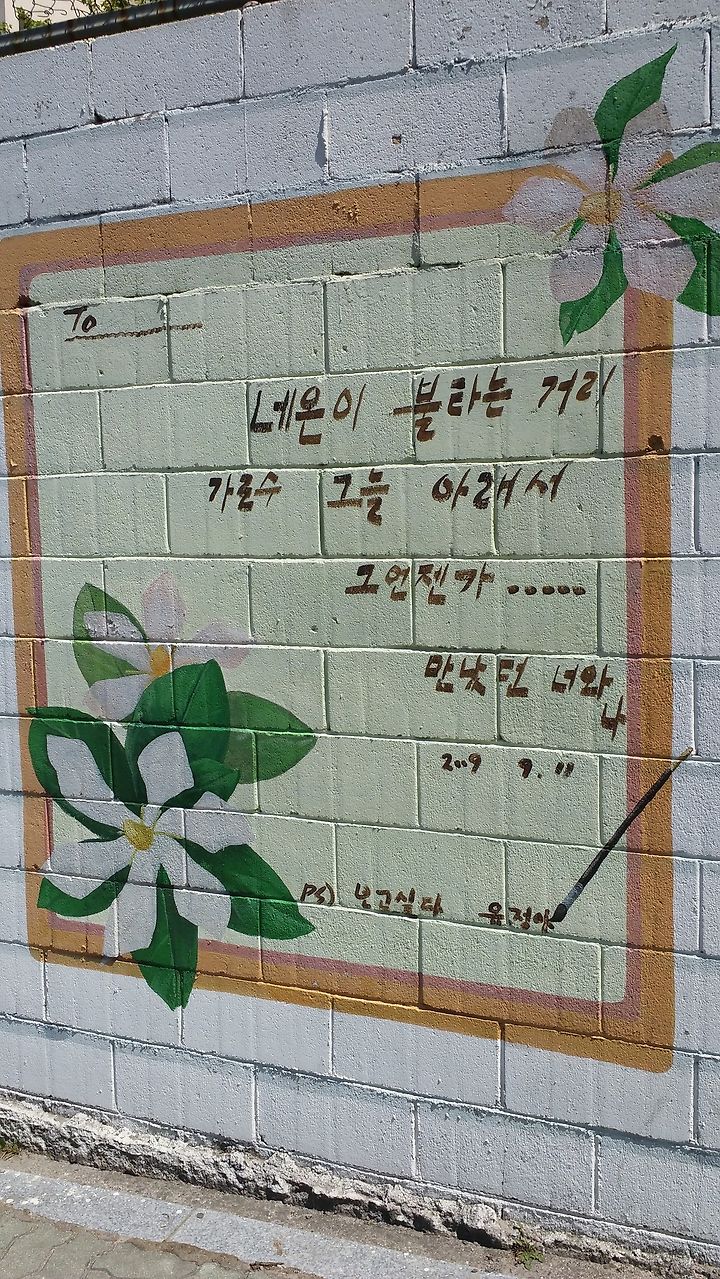 To
네온이 불타는 거리
가로수 그늘 아래서
그언젠가......
만났던 너와
나
2009 9. 11
PS) 보고싶다 윤정아